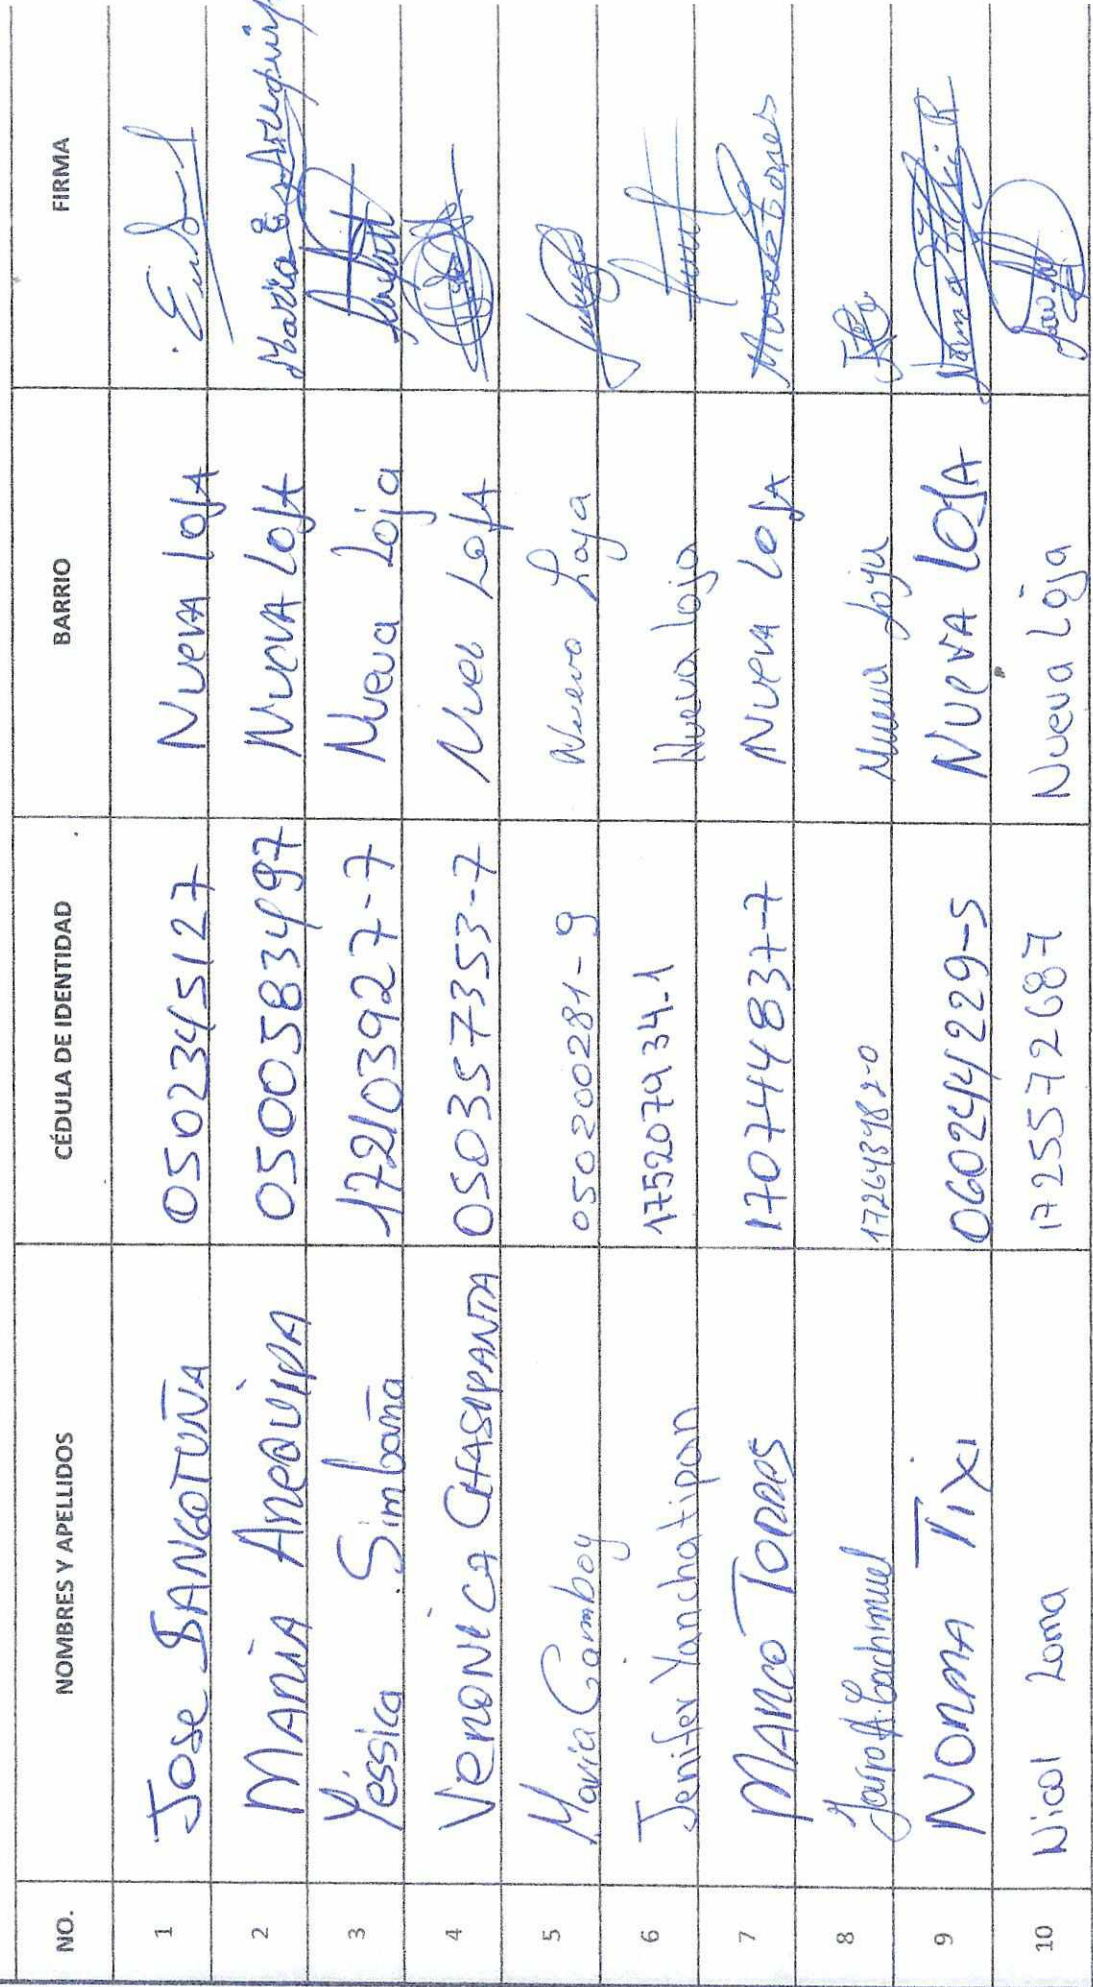 NO. NOMBRES Y APELLIDOS CÉDULA DE IDENTIDAD BARRIO FIRMA
1 Jose SANGOTUÑA 0502345127 Nueva Loja
2 MARIA AREQUIPA 0500583497 Nueva Loja Maria E Arequipa
3 Yessica Simbaña 172103927-7 Nueva Loja
4 VERONICA CHASIPANTA 050357353-7 Loja
5 Maria Gamboy 050200281-9 Nueva Loja
6 Jenifer Yanchatipan 175207934-1 Nueva Loja
7 MARCO TORRES 170744837-7 Nueva Loja Marco Torres
8 172643482-0 Nueva Loja
9 NORMA TIXI 060244229-5 NUEVA LOJA
10 Nicol Loma 1725572687 Nueva Loja